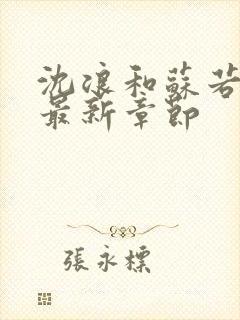 沈浪和蘇若
最新章節
張永標